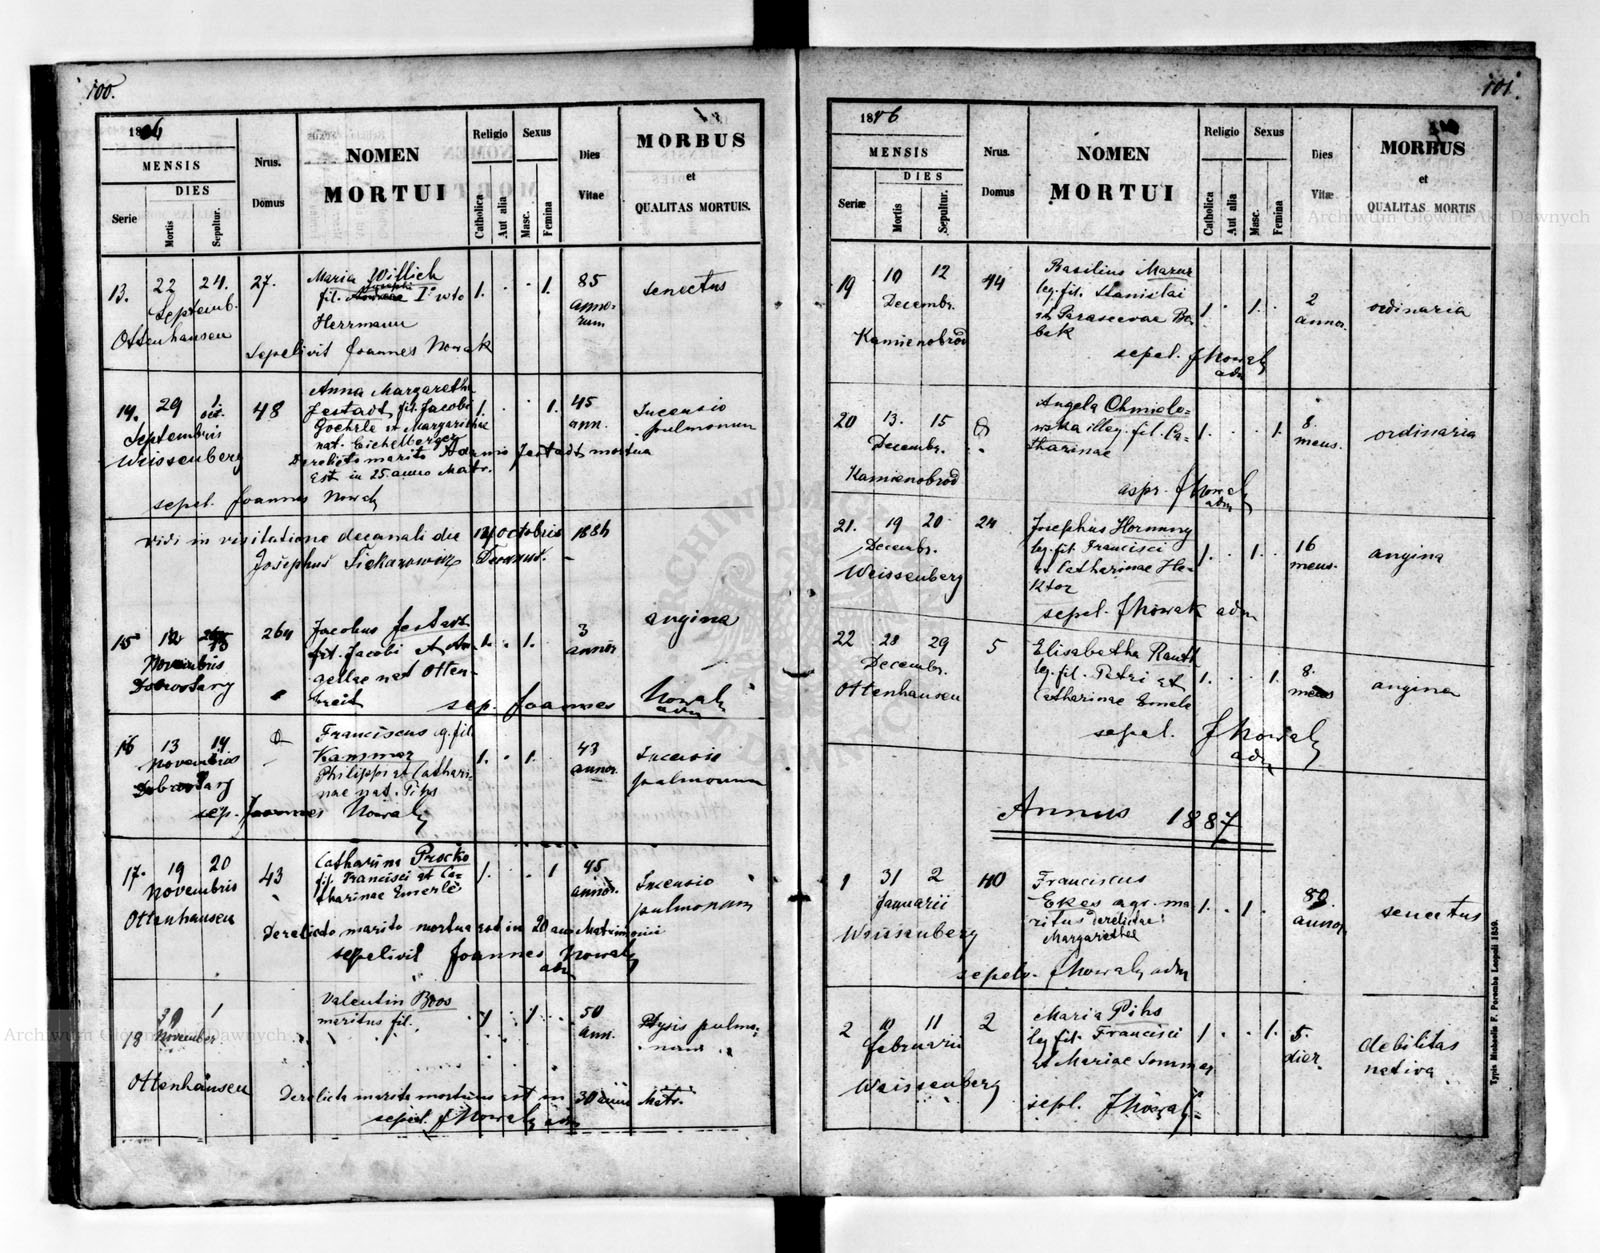 100.
1886
MENSIS
DIES
Serie
Mortis
Sepultur.
Nrus.
Domus
NOMEN
MORTUI
Religio
Catholica
Aut alia
Sexus
Masc.
Femina
Dies
Vitae
MORBUS
et
QUALITAS MORTUIS.
13. 22 24. 27. Maria Willich 1. 1. 85 senectus
Septemb. fil. Josephi Iº voto anno-
Ottenhausen Herrmann rum
Sepelivit Joannes Nowak
14. 29 1. oct. 48 Anna Margaretha 1. 1. 45 Incensio
Septembris Jestadt fil. Jacobi ann. pulmonum
Weissenberg Goehrle et Margarithae
nat. Eichelberger
Derelicto marito Adamo Jestadt mortua
est in 25. anno Matr.
sepel. Joannes Nowak
Vidi in visitatione decanali die octobris 1886
Josephus Decanus. –
15 12 13 264 Jacobus Jestadt 1. 1. 3 angina
Novembris fil. Jacobi annor
Dobrostany nat Otten-
breit sep. Joannes Nowak
adm
16 13 14. Franciscus g. fil. 1. 1. 43 Incensio
Novembris Kammer annor. pulmonum
Dobrostany Philippi et Cathari-
nae nat. Pihs
sep. Joannes Nowak
17. 19 20 43 Catharina Procko 1. 1 45 Incensio
Novembris fil. Francisci et Ca- annor. pulmonum
Ottenhausen tharinae Emerle
Derelicto marito mortua est in 20 ano Matrimonii
sepelivit Joannes Nowak
adm
18 30 1 Valentin Boos 1 1 50 Ptysis pulmo-
November meritus fil. ann. num
Ottenhausen
Derelicta marita mortuus est in 30 anno Matr.
sepel. JNowak adm
101.
1886
MENSIS
DIES
Seriæ
Mortis
Sepultur.
Nrus.
Domus
NOMEN
MORTUI
Religio
Catholica
Aut alia
Sexus
Masc.
Femina
Dies
Vitæ
MORBUS
et
QUALITAS MORTIS
19 10 12 44 Basilius Mazur 1 1 2 ordinaria
Decembr. leg. fil. Stanislai annor.
Kamienobrod et Parascevae Ba-
bek
sepel. JNowak
adm
20 13. 15 8 Angela Chmielo- 1. 1. 8. ordinaria
Decembr. wska illeg. fil. Ca- mens.
Kamienobrod tharinae
JNowak
adm
21. 19 20 24 Josephus Hornung 1. 1. 16 angina
Decembr. leg. fil. Francisci mens.
Weissenberg et Catharinae He-
ktor
sepel. JNowak adm
22 28 29 5 Elisabetha Rauth 1. 1. 8. angina
Decembr. leg. fil. Petri et mens
Ottenhausen Catharinae
sepel. JNowak
adm
Annus 1887
1 31 2 40 Franciscus 1. 1. 80. senectus
Januarii Ekes agr. ma- annor.
Weissenberg ritus derelictae
Margarethae
sepelv. JNowak adm
2 10 11 2 Maria Pihs 1 1. 5. debilitas
februarii leg. fil. Francisci dier. nativa.
Weissenberg et Mariae Sommer
sepl. JNowak
Typis Michaelis F. Poremba Leopoli 1859.
Archiwum Główne Akt Dawnych
Archiwum Główne Akt Dawnych